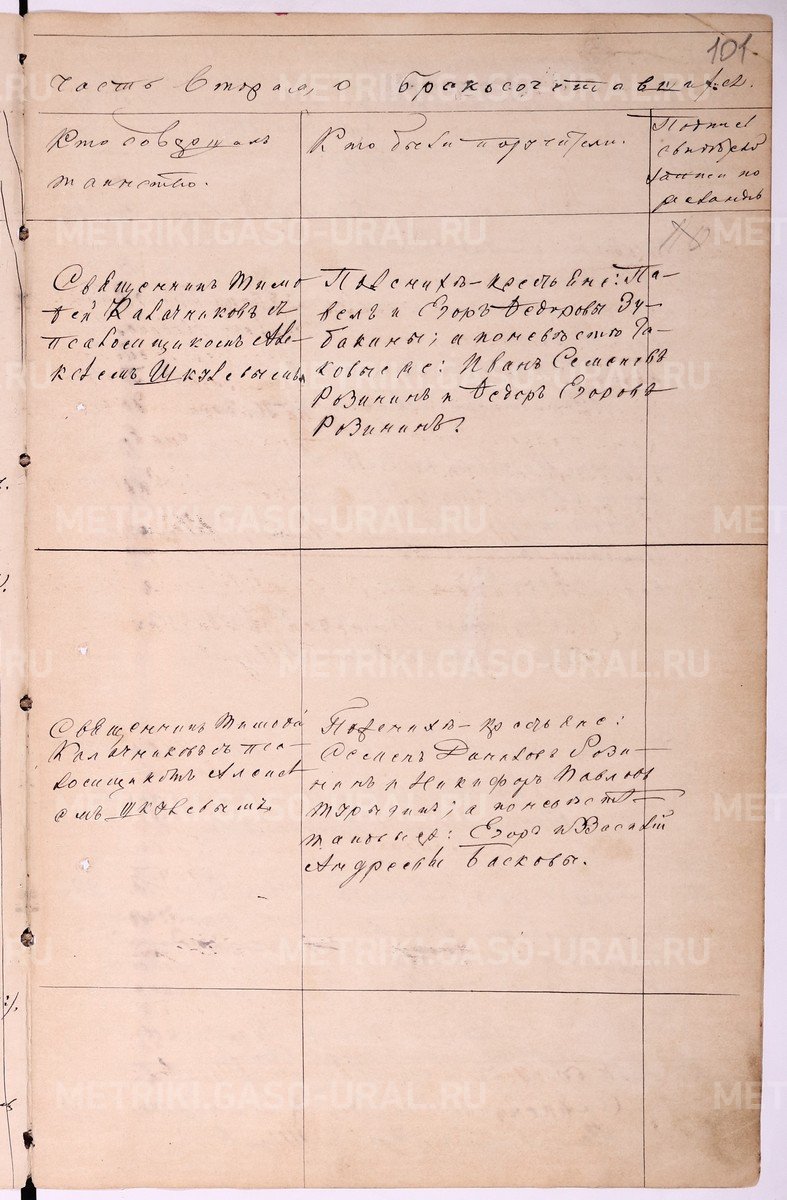 101.
Часть вторая, о бракосочетавшихся.
Кто совершалъ
таинство.
Кто были поручители.
Подпись
свидѣтелей
записи по
желанію
Священникъ Тимо
фей Калачниковъ съ
псаломщикомъ Але-
ксѣемъ Шкулевымъ.
По женихѣ – крестьяне: Па-
велъ и Егоръ Ѳедоровы Зу-
бакины; а по невѣстѣ та-
ковые же: Иванъ Семеновъ
Розининъ и Ѳедоръ Егоровъ
Розининъ.
Священникъ Тимофей
Калачниковъ съ пса-
ломщикомъ Алексѣ
емъ Шкулевымъ
По женихѣ – крестьяне:
Семенъ Даниловъ Рози-
нинъ и Никифоръ Павловъ
а по невѣстѣ –
таковые же: Егоръ и Василій
Андреевы Басковы.
METRIKI.GASO-URAL.RU